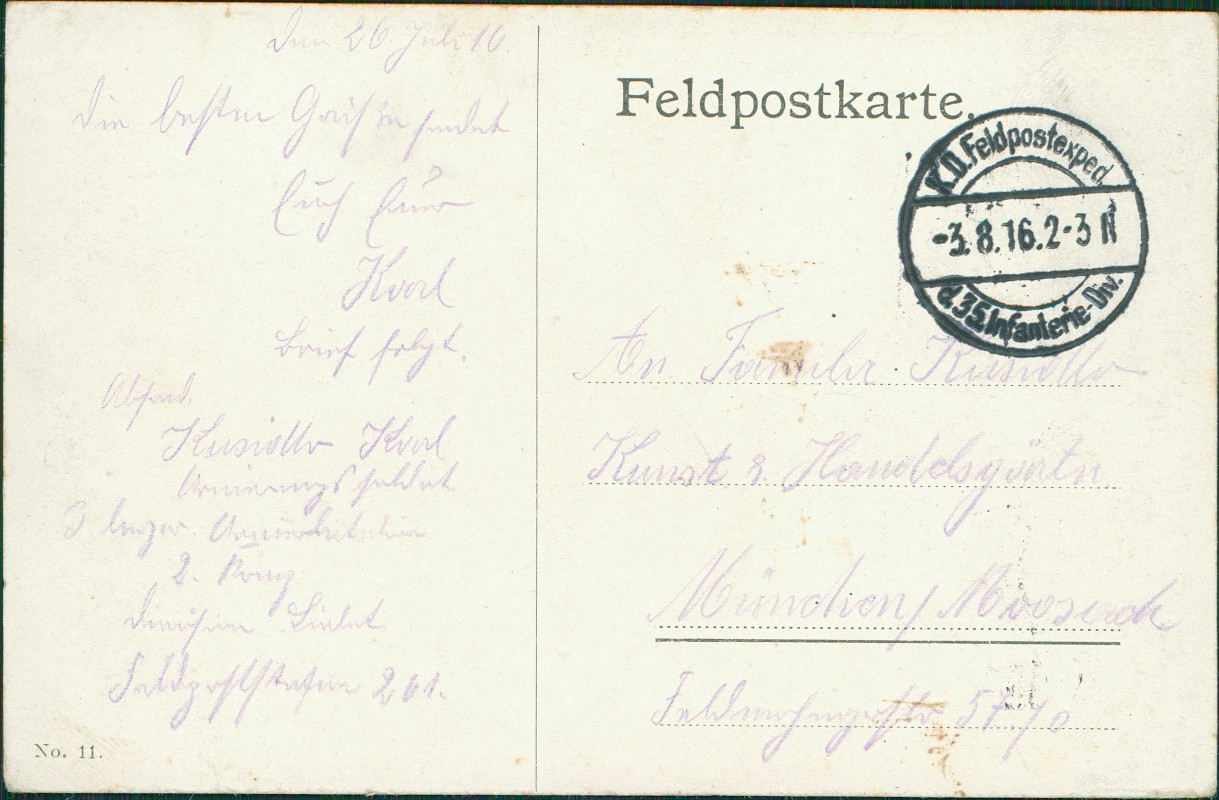 den 26. Juli 16.
die besten Grüße sendet
Euch Euer
Karl
Brief folgt.
Absend.
Kusiollo Karl
Armierungssoldat
3. bayr. Armierbatallion
2. Komp
Division
Feldpoststation 261.
No. 11.
Feldpostkarte.
K.D. Feldpostexped.
-3. 8. 16. 2-3 N
d. 35. Infanterie-Div.
An Familie Kusiollo
Kunst & Handelsgärtn.
München/Moosach
Feldmochingerstr. 57 / 0